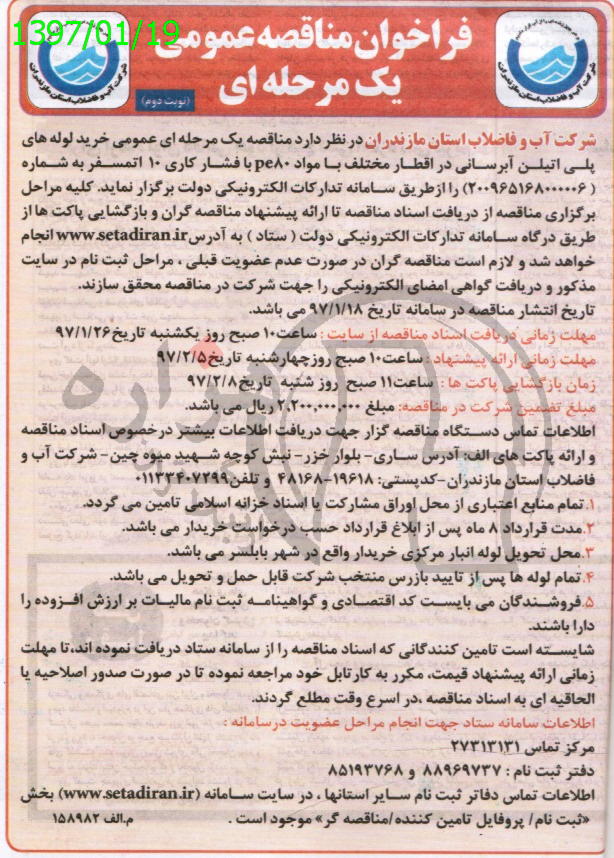 1397/01/19
فراخوان مناقصه عمومی
یک مرحله ای
(نوبت دوم)
شرکت آب و فاضلاب استان مازندران
شرکت آب و فاضلاب استان مازندران
شرکت آب و فاضلاب استان مازندران در نظر دارد مناقصه یک مرحله ای عمومی خرید لوله های
پلی اتیلن آبرسانی در اقطار مختلف با مواد pe۸۰ با فشار کاری ۱۰ اتمسفر به شماره
( ۲۰۰۹۶۵۱۶۸۰۰۰۰۰۶) را ازطریق سامانه تدارکات الکترونیکی دولت برگزار نماید. کلیه مراحل
برگزاری مناقصه از دریافت اسناد مناقصه تا ارائه پیشنهاد مناقصه گران و بازگشایی پاکت ها از
طریق درگاه سامانه تدارکات الکترونیکی دولت ( ستاد ) به آدرس www.setadiran.ir انجام
خواهد شد و لازم است مناقصه گران در صورت عدم عضویت قبلی ، مراحل ثبت نام در سایت
مذکور و دریافت گواهی امضای الکترونیکی را جهت شرکت در مناقصه محقق سازند.
تاریخ انتشار مناقصه در سامانه تاریخ ۹۷/۱/۱۸ می باشد.
مهلت زمانی دریافت اسناد مناقصه از سایت : ساعت۱۰ صبح روز یکشنبه تاریخ۹۷/۱/۲۶
مهلت زمانی ارائه پیشنهاد : ساعت۱۰ صبح روزچهارشنبه تاریخ۹۷/۲/۵
زمان بازگشایی پاکت ها : ساعت۱۱ صبح روز شنبه تاریخ۹۷/۲/۸
مبلغ تضمین شرکت در مناقصه: مبلغ ۲,۲۰۰,۰۰۰,۰۰۰ ریال می باشد.
اطلاعات تماس دستگاه مناقصه گزار جهت دریافت اطلاعات بیشتر درخصوص اسناد مناقصه
و ارائه پاکت های الف: آدرس ساری- بلوار خزر- نبش کوچه شهید میوه چین- شرکت آب و
فاضلاب استان مازندران -کدپستی: ۱۹۶۱۸-۴۸۱۶۸ و تلفن۰۱۱۳۳۴۰۷۲۹۹
۱.تمام منابع اعتباری از محل اوراق مشارکت یا اسناد خزانه اسلامی تامین می گردد.
۲.مدت قرارداد ۸ ماه پس از ابلاغ قرارداد حسب درخواست خریدار می باشد.
۳.محل تحویل لوله انبار مرکزی خریدار واقع در شهر بابلسر می باشد.
۴.تمام لوله ها پس از تایید بازرس منتخب شرکت قابل حمل و تحویل می باشد.
۵.فروشندگان می بایست کد اقتصادی و گواهینامه ثبت نام مالیات بر ارزش افزوده را
دارا باشند.
شایسته است تامین کنندگانی که اسناد مناقصه را از سامانه ستاد دریافت نموده اند،تا مهلت
زمانی ارائه پیشنهاد قیمت، مکرر به کارتابل خود مراجعه نموده تا در صورت صدور اصلاحیه یا
الحاقیه ای به اسناد مناقصه ،در اسرع وقت مطلع گردند.
اطلاعات سامانه ستاد جهت انجام مراحل عضویت درسامانه :
مرکز تماس ۲۷۳۱۳۱۳۱
دفتر ثبت نام : ۸۸۹۶۹۷۳۷ و ۸۵۱۹۳۷۶۸
اطلاعات تماس دفاتر ثبت نام سایر استانها ، در سایت سامانه (www.setadiran.ir) بخش
«ثبت نام/ پروفایل تامین کننده/مناقصه گر» موجود است .
م.الف ۱۵۸۹۸۲